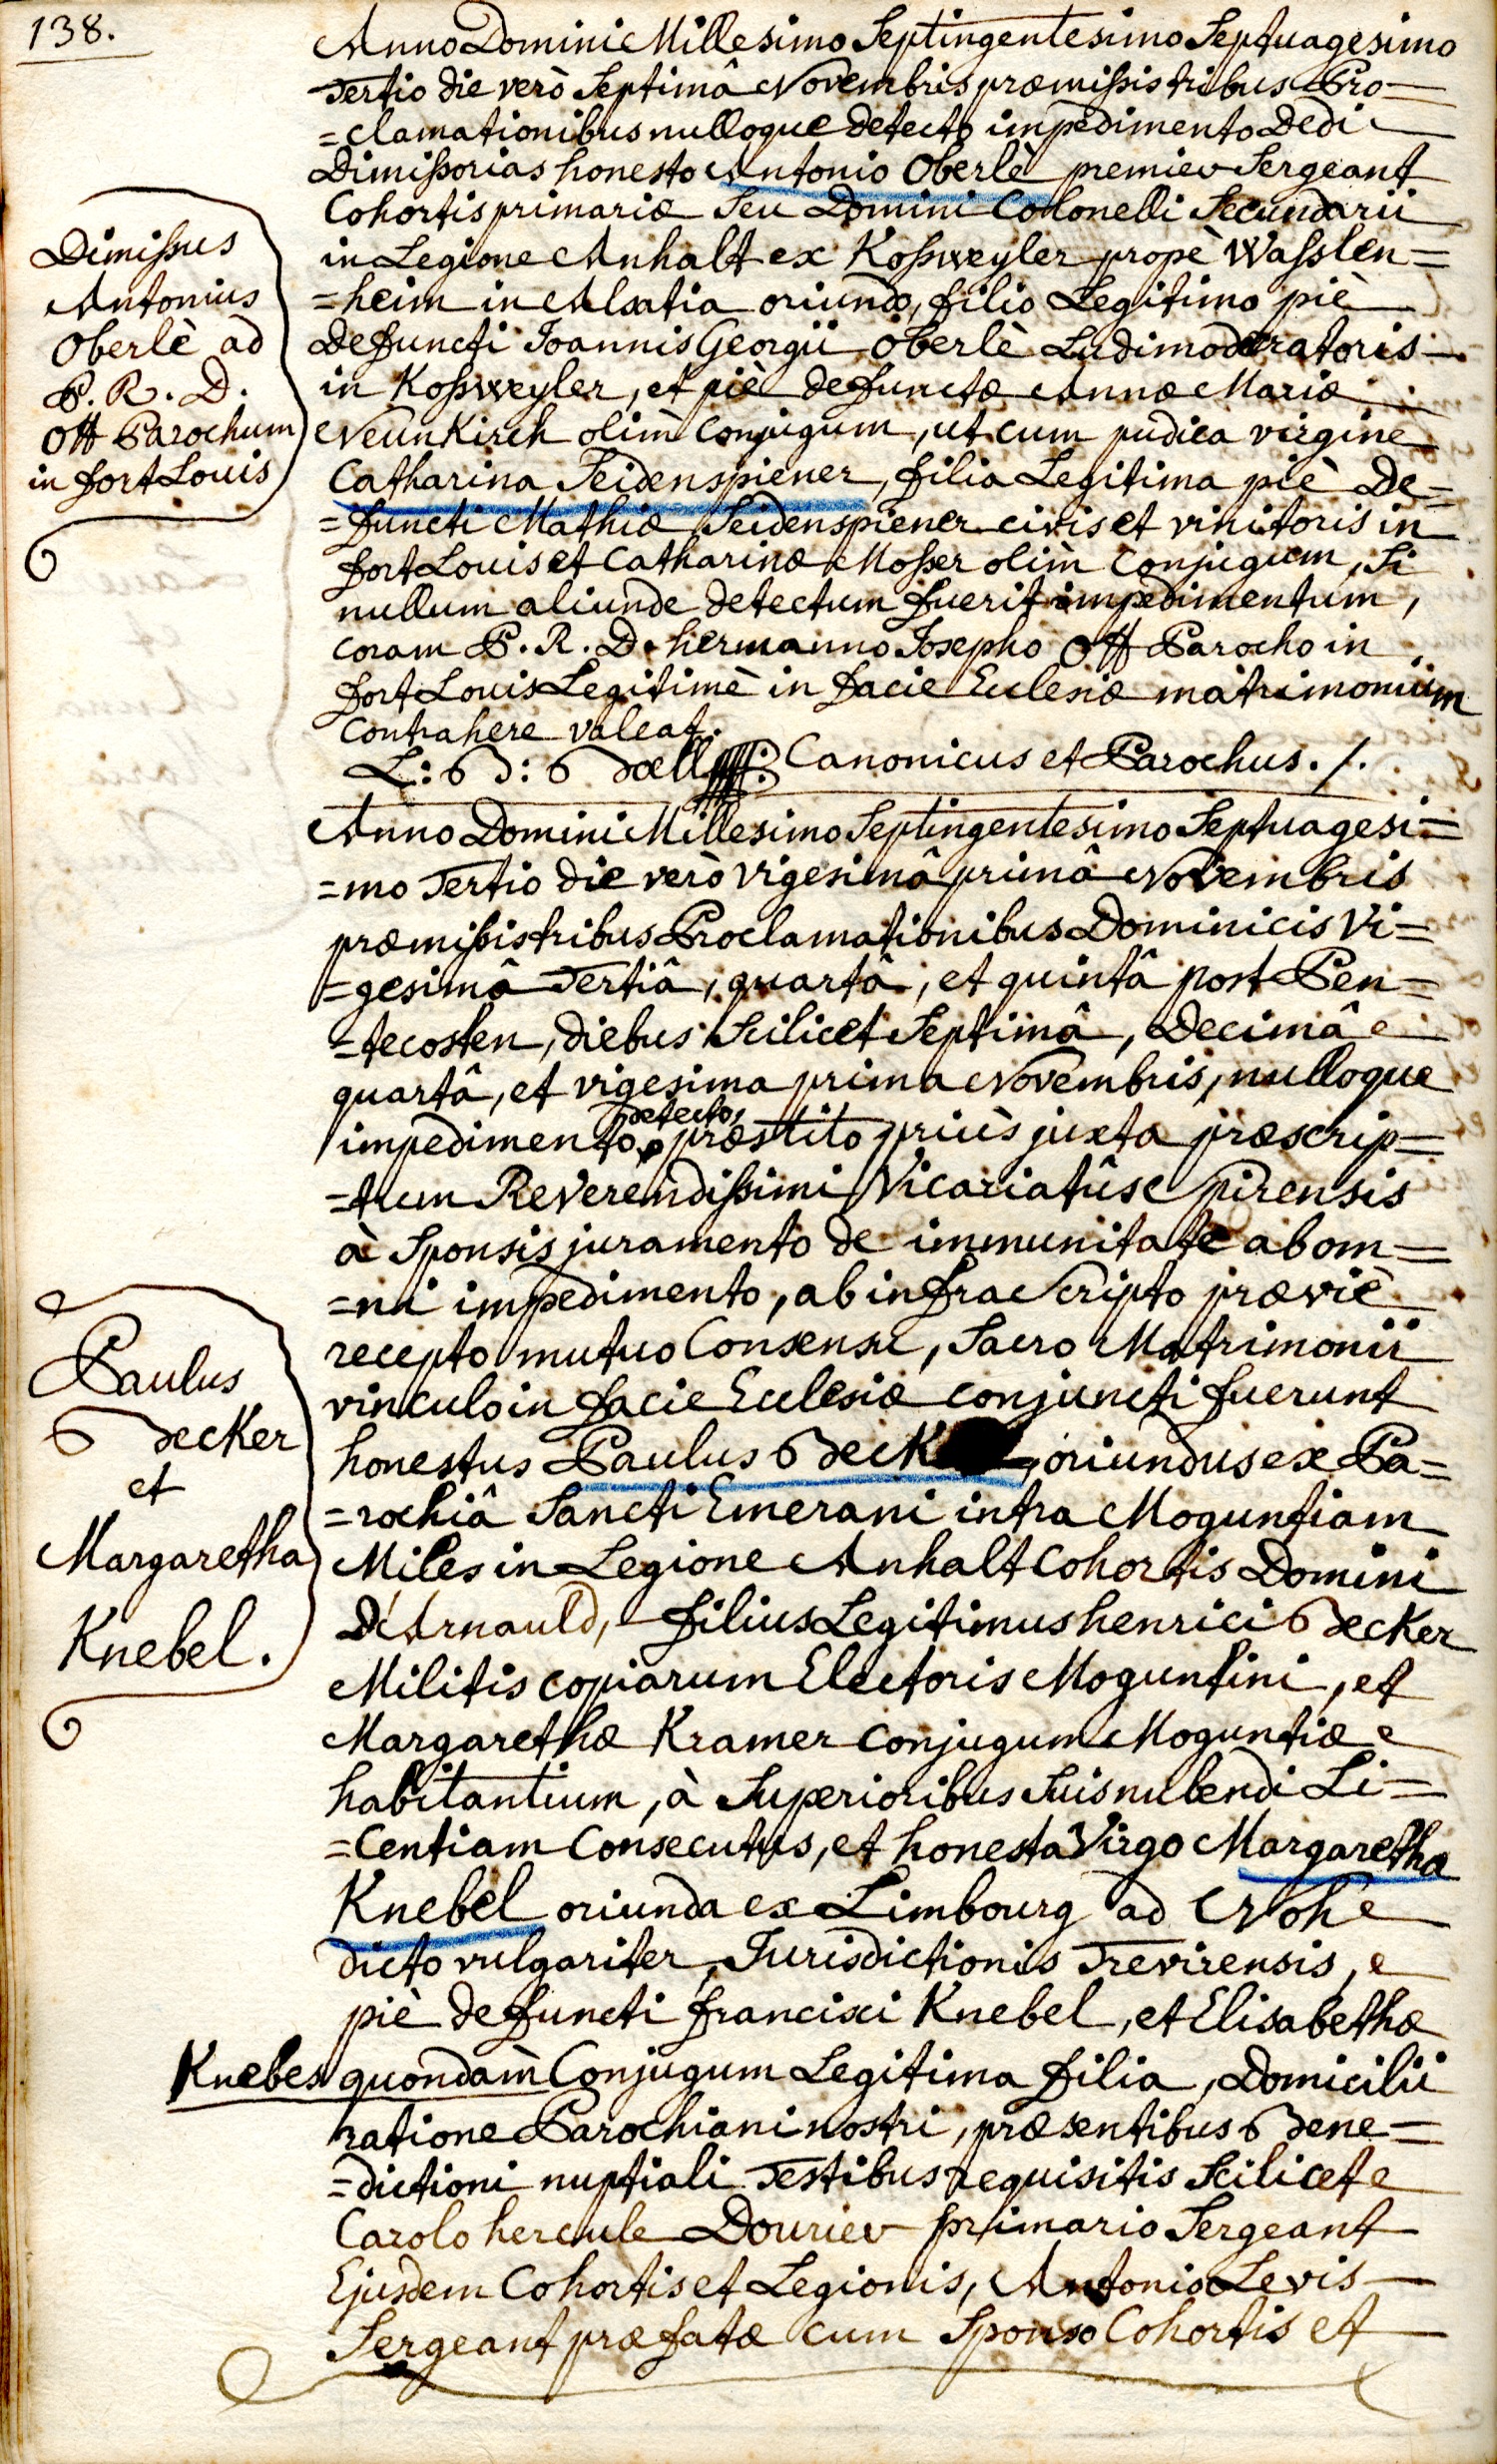 138.
Anno Domini Millesimo Septingentesimo Septuagesimo
Tertio die verò Septimâ Novembris præmissis tribus Pro=
=clamationibus nulloque detecto impedimento Dedi
Dimissorias honesto Antonio Oberlè premier Sergeant
Cohortis primariæ Seu Domini Colonelli Secundarii
in Legione Anhalt ex Kossweyler propè Wasslen=
=heim in Alsatia oriundo, filio Legitimo piè
defuncti Joannis Georgii Oberlè Ludimoderatoris
in Kossweyler, et piè defunctæ Annæ Mariæ
NeunKirch olim Conjugum, ut cum pudica virgine
Catharina Seidenspiener, filia Legitima piè De=
=functi Mathiæ Seidenspiener civis et vinitoris in
fort Louis et Catharinæ Mosser olim Conjugum, Si
nullum aliunde detectum fuerit impedimentum,
coram P. R. D. hermanno Josepho Off Parocho in
fort Louis Legitimè in facie Eclesiæ matrimonium
Contrahere valeat.
Dimissus
Antonius
Oberlè ad
P. R. D.
Off Parochum
in fort Louis
L: B: Bœll Canonicus et Parochus. /.
Anno Domini Millesimo Septingentesimo Septuagesi=
=mo Tertio die verò vigesimâ primâ Novembris
præmissis tribus Proclamationibus Dominicis Vi=
=gesimâ Tertiâ, quartâ, et quintâ post Pen=
=tecosten, diebus Scilicet Septimâ, Decimâ
quartâ, et vigesima prima Novembris, nulloque
detecto,
impedimento præstito priùs juxta præscrip=
=tum Reverendissimi Vicariatûs Spirensis
à Sponsis juramento de immunitate ab om=
=ni impedimento, ab infra Scripto præviè
recepto mutuo Consensu, Sacro Matrimonii
vinculo in facie Eclesiæ conjuncti fuerunt
honestus Paulus Beck oriundus ex Pa=
=rochiâ Sancti Emerani intra Moguntiam
Miles in Legione Anhalt Cohortis Domini
D'Arnauld, filius Legitimus henrici Becker
Militis copiarum Electoris Moguntini, et
Margarethæ Kramer Conjugum Moguntiæ
habitantium, à Superioribus Suis nubendi Li=
=Centiam Consecutus, et honesta Virgo Margaretha
Knebel oriunda ex Limbourg ad Nohe
dicto vulgariter, Jurisdictionis Trevirensis,
piè defuncti francisci Knebel, et Elisabethæ
Knebes quondam Conjugum Legitima filia, Domicilii
ratione Parochiani nostri, præsentibus Bene=
=dictioni nuptiali Testibus requisitis Scilicet
Carolo hercule Dourier primario Sergeant
Ejusdem Cohortis et Legionis, Antonio Levis
Sergeant præfatæ cum Sponso Cohortis et
Paulus
Becker
et
Margaretha
Knebel.